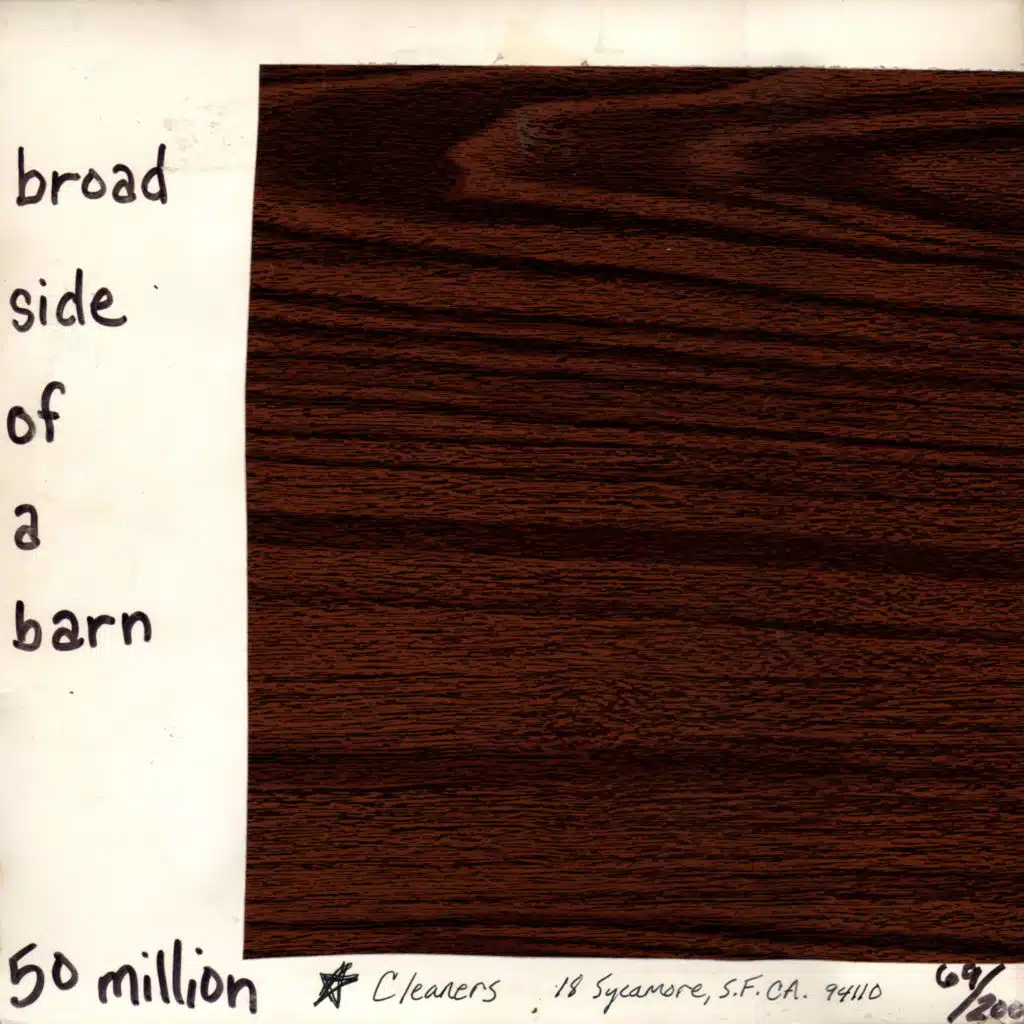 broad
side
of
a
barn
50 million ★ Cleaners 18 Sycamore, S.F. CA. 94110 69/200